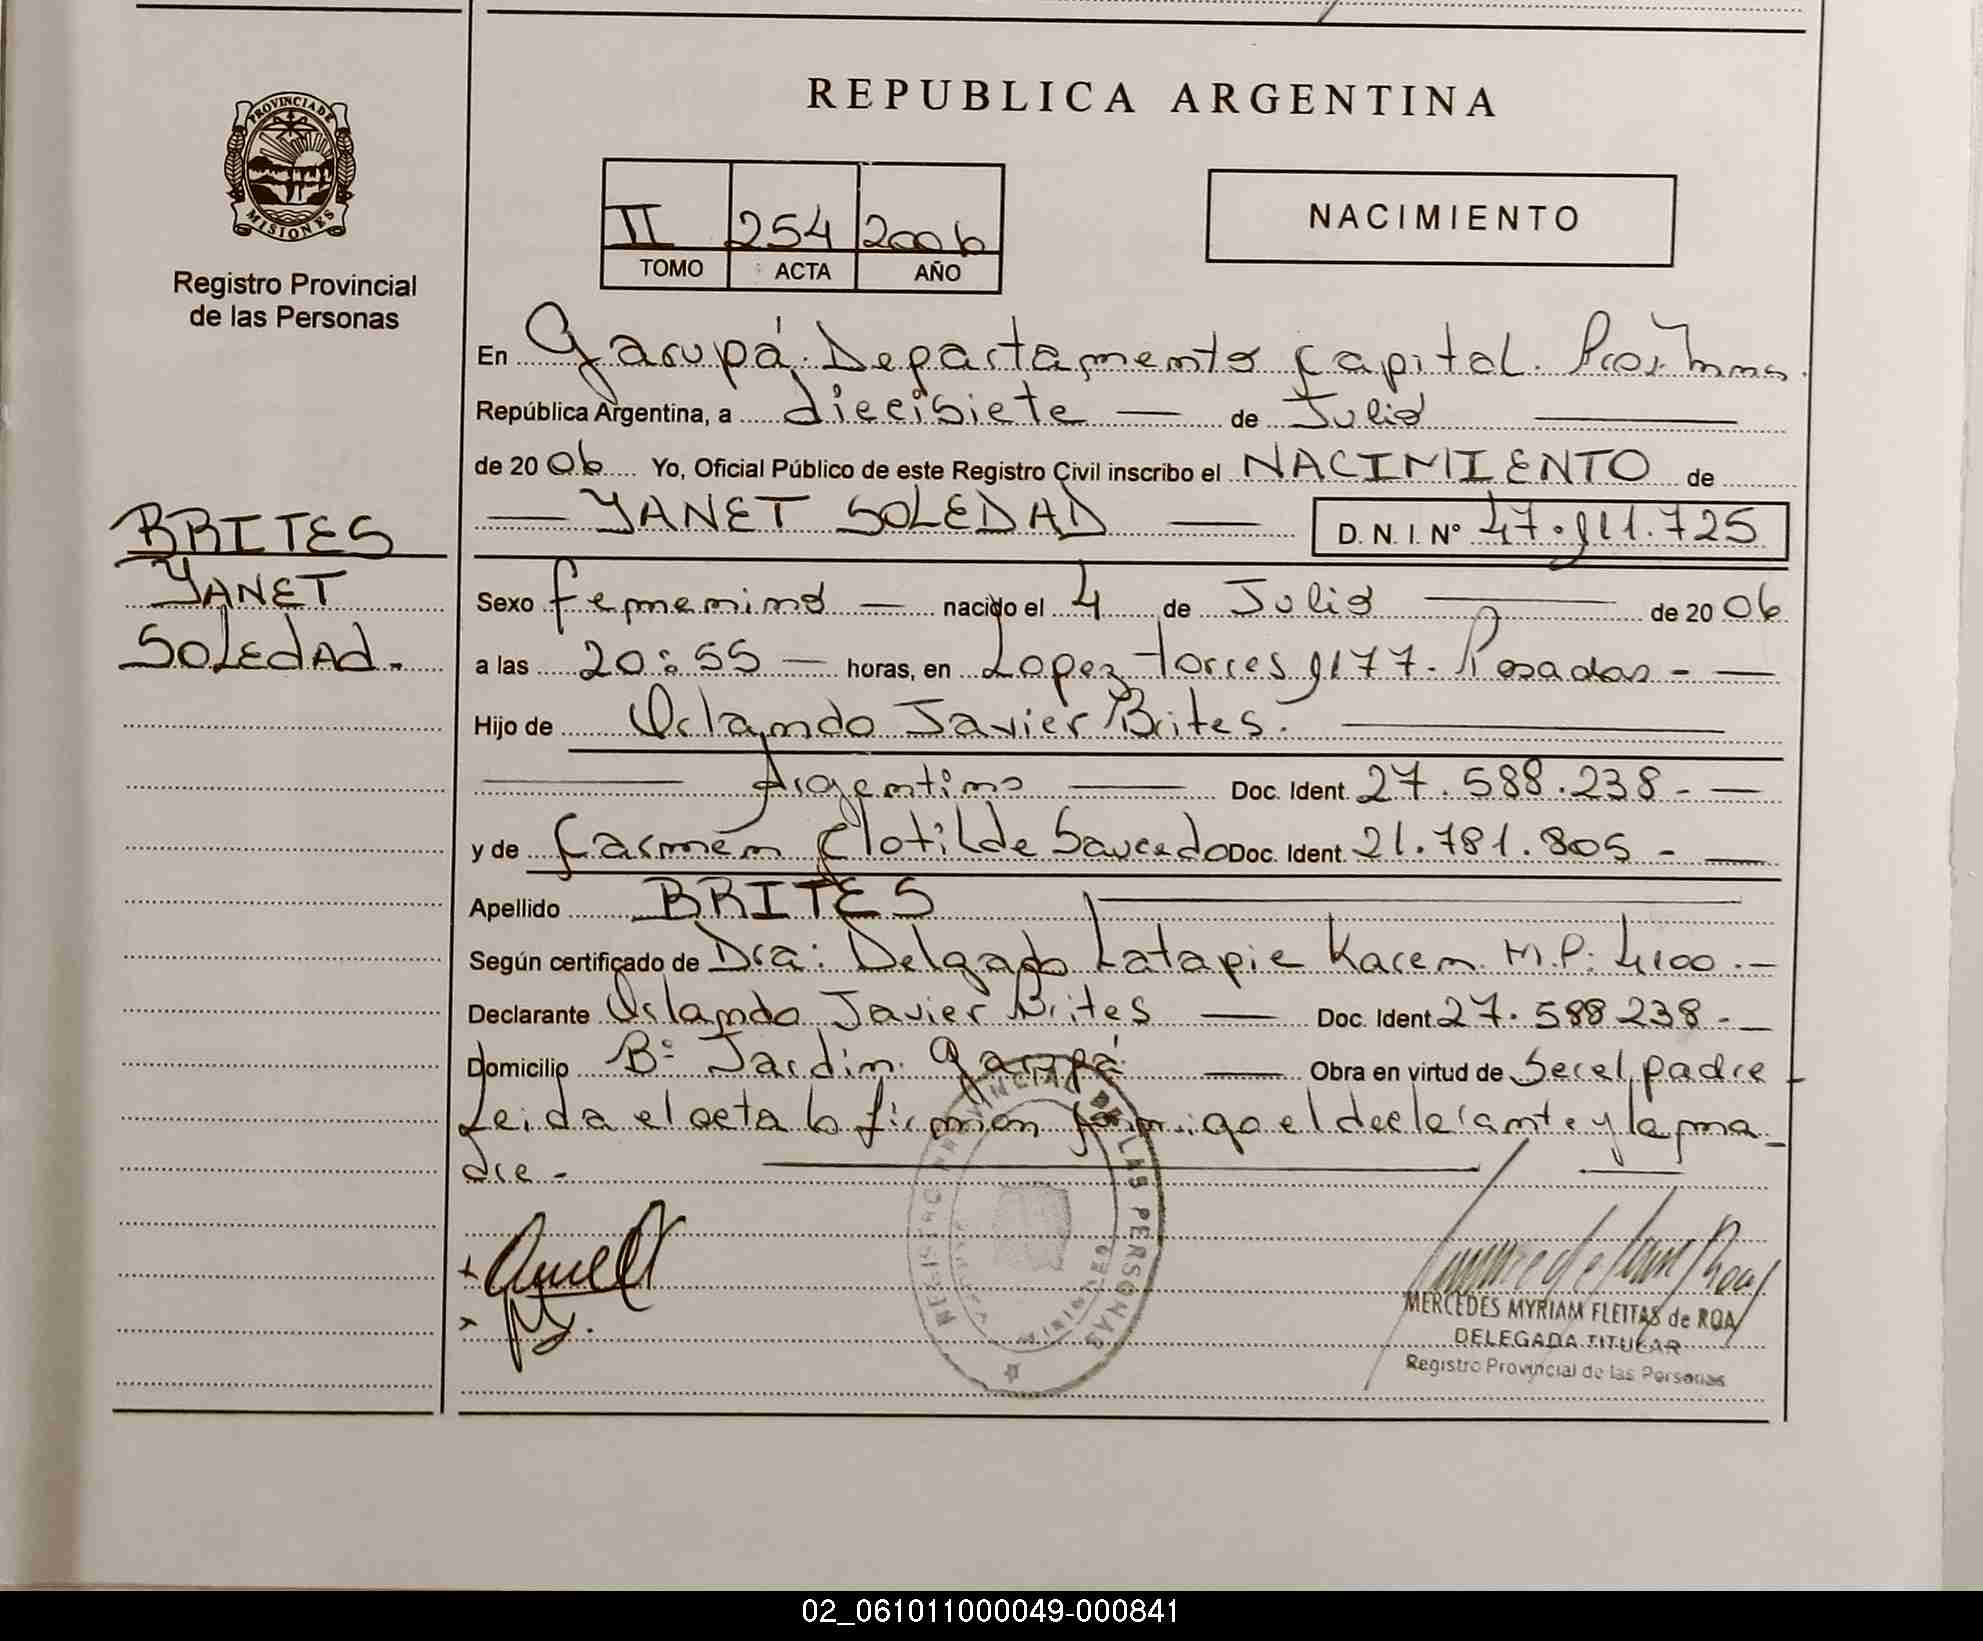 REPUBLICA ARGENTINA
PROVINCIA DE
MISIONES
Registro Provincial
de las Personas
II 254 2006
TOMO ACTA AÑO
NACIMIENTO
En Garupá. Departamento Capital. Prov. Mnes.
República Argentina, a diecisiete — de Julio
de 20 06 Yo, Oficial Público de este Registro Civil inscribo el NACIMIENTO de
— YANET SOLEDAD — D. N. I. Nº 47.911.725
BRITES
YANET
SOLEdAd.
Sexo femenino — nacido el 4 de Julio — de 20 06
a las 20:55 — horas, en Lopez Torres 9177. Posadas - —
Hijo de Orlando Javier Brites.
Argentino — Doc. Ident. 27.588.238 - —
y de Carmen Clotilde Saucedo Doc. Ident. 21.781.805 - —
Apellido BRITES
Según certificado de Dra: Delgado Latapie Karen M.P: 4100.-
Declarante Orlando Javier Brites — Doc. Ident 27.588238 - —
Domicilio Bº Jardin. Garupá — Obra en virtud de Ser el padre
Leida el acta la firman conmigo el declarante y la ma-
dre -
REGISTRO PROVINCIAL DE LAS PERSONAS
MERCEDES MYRIAM FLEITAS de ROA
DELEGADA TITULAR
Registro Provincial de las Personas
02_061011000049-000841